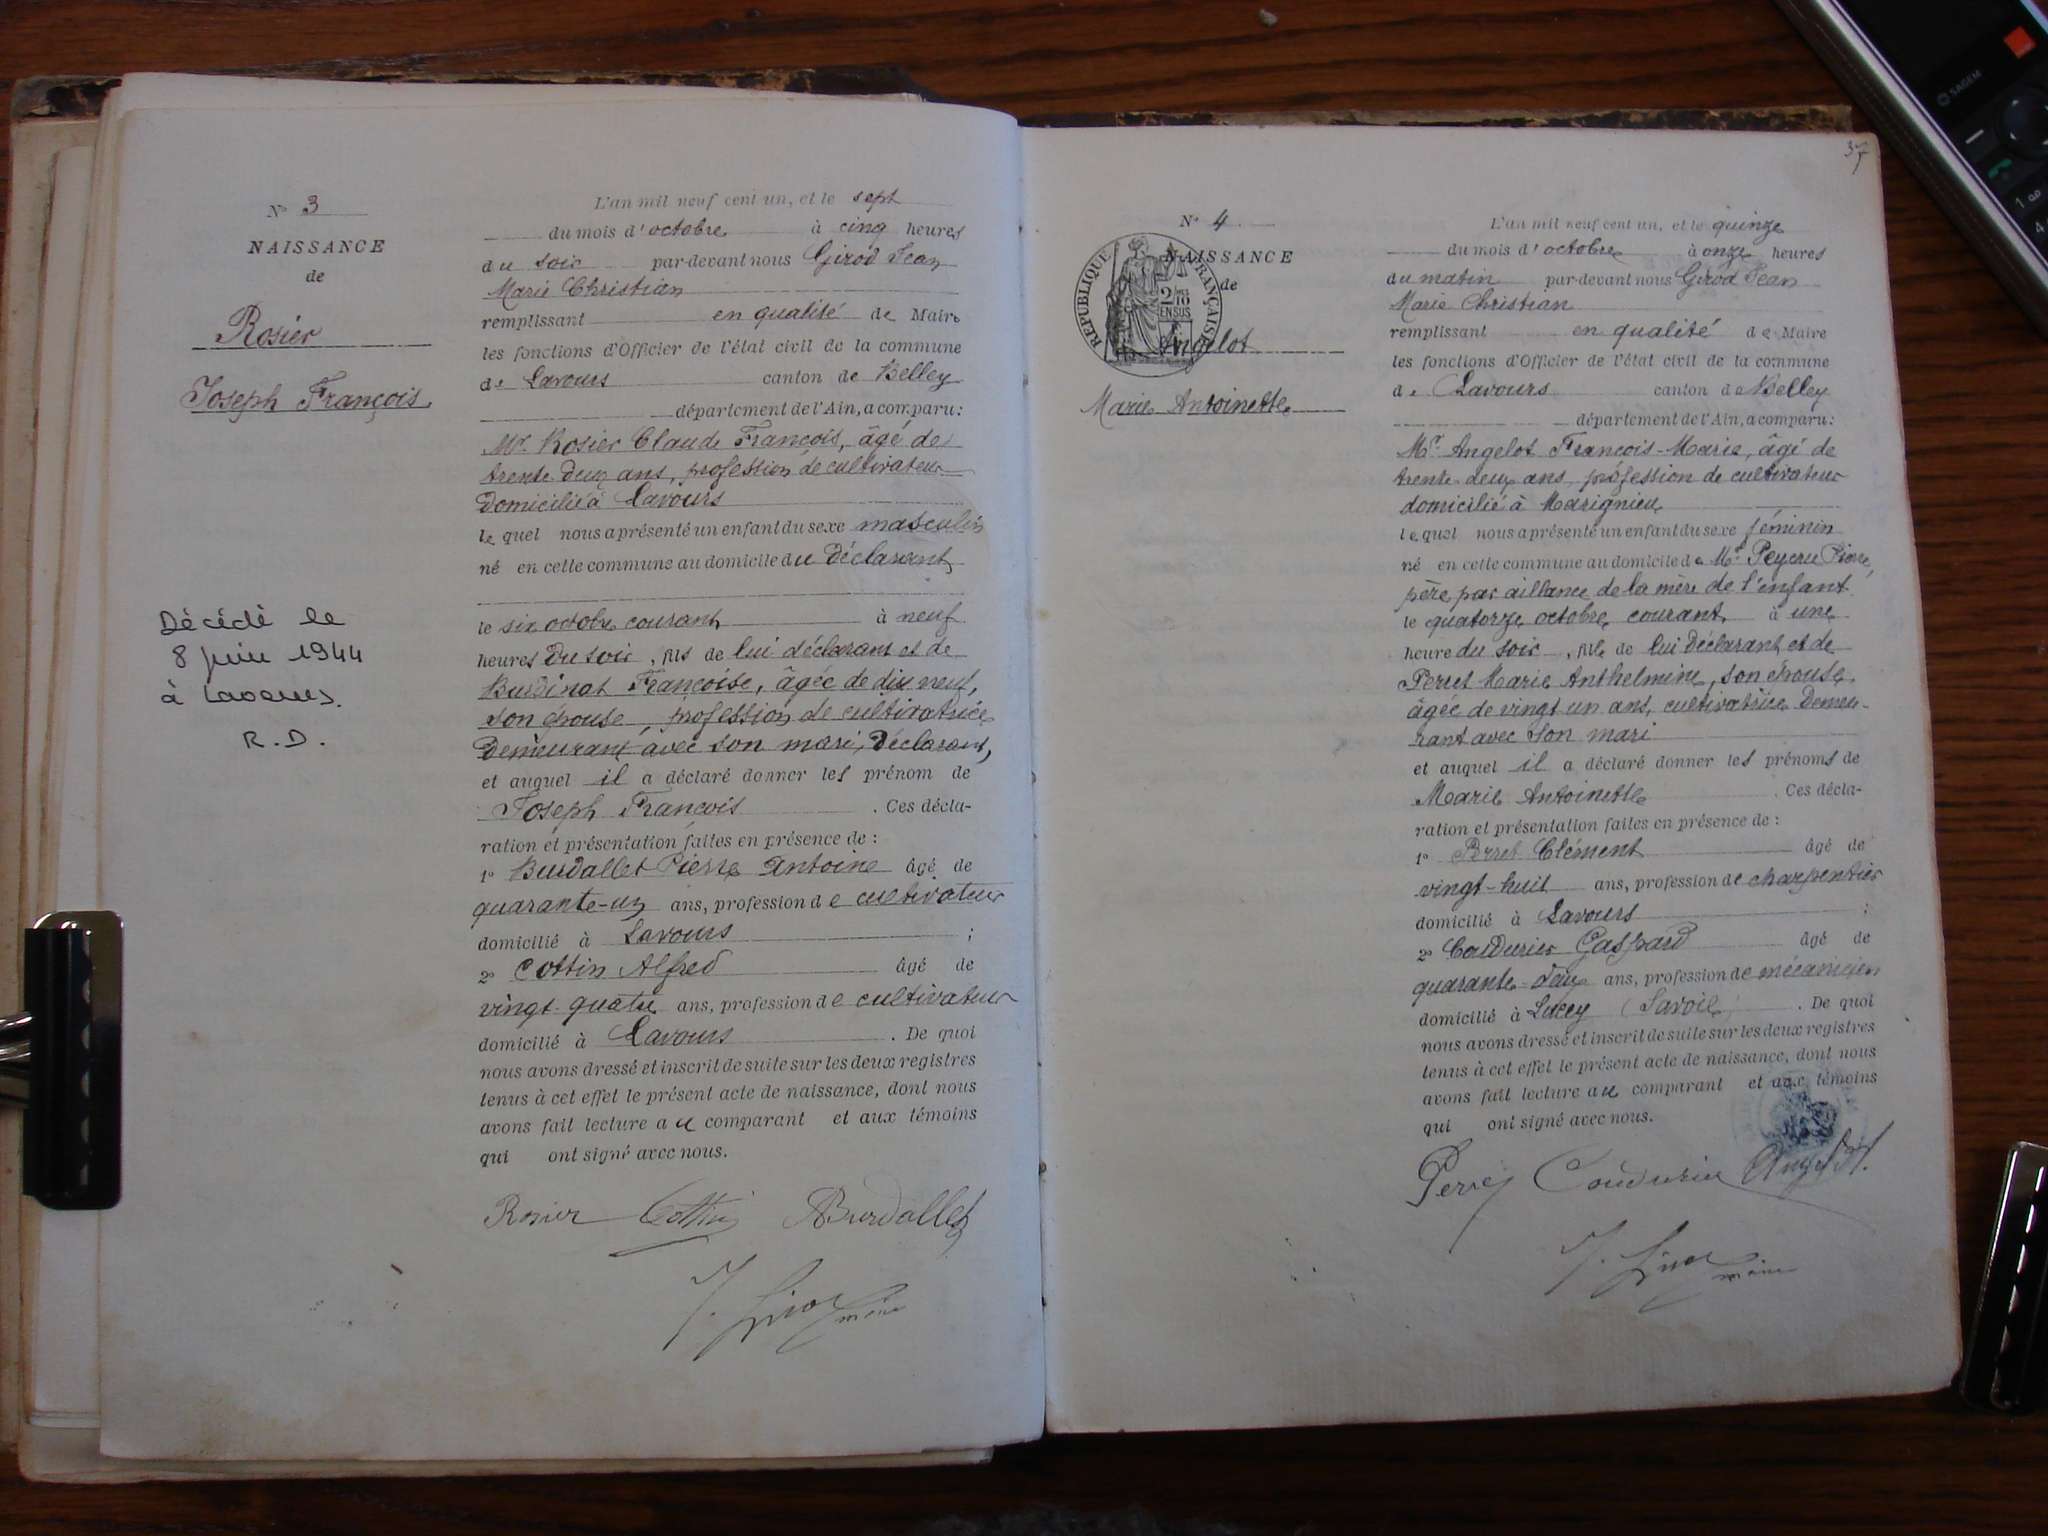 N° 3
NAISSANCE
de
Rosier
Joseph François
Décédé le
8 juin 1944
à Lavours.
R.D.
L'an mil neuf cent un, et le sept
du mois d'octobre à cinq heures
du soir par-devant nous Girod Jean
Marie Christian
remplissant en qualité de Maire
les fonctions d'Officier de l'état civil de la commune
de Lavours canton de Belley
département de l'Ain, a comparu:
Mr. Rosier Claude François, âgé de
trente deux ans, profession de cultivateur
domicilié à Lavours
lequel nous a présenté un enfant du sexe masculin
né en cette commune au domicile du déclarant
le six octobre courant à neuf
heures du soir, fils de lui déclarant et de
Burdinat Françoise, âgée de dix neuf,
son épouse, profession de cultivatrice
demeurant avec son mari, déclarant,
et auquel il a déclaré donner les prénom de
Joseph François. Ces décla-
ration et présentation faites en présence de :
1° Burdallet Pierre Antoine âgé de
quarante-un ans, profession de cultivateur
domicilié à Lavours ;
2° Cottin Alfred âgé de
vingt-quatre ans, profession de cultivateur
domicilié à Lavours. De quoi
nous avons dressé et inscrit de suite sur les deux registres
tenus à cet effet le présent acte de naissance, dont nous
avons fait lecture au comparant et aux témoins
qui ont signé avec nous.
Rosier Cottin Burdallet
J. Girod maire
37
N° 4
NAISSANCE
de
RÉPUBLIQUE FRANÇAISE
2/10
EN SUS
Angelot
Marie Antoinette
L'an mil neuf cent un, et le quinze
du mois d'octobre à onze heures
du matin par-devant nous Girod Jean
Marie Christian
remplissant en qualité de Maire
les fonctions d'Officier de l'état civil de la commune
de Lavours canton de Belley
département de l'Ain, a comparu:
Mr. Angelot François-Marie, âgé de
trente deux ans, profession de cultivateur
domicilié à Marignieu
lequel nous a présenté un enfant du sexe féminin
né en cette commune au domicile de Mr. Peycru Pierre,
père par aillance de la mère de l'enfant
le quatorze octobre courant à une
heure du soir, fille de lui déclarant et de
Perret Marie Anthelmine, son épouse,
âgée de vingt un ans, cultivatrice demeu-
rant avec son mari
et auquel il a déclaré donner les prénoms de
Marie Antoinette. Ces décla-
ration et présentation faites en présence de :
1° Perret Clément âgé de
vingt-huit ans, profession de charpentier
domicilié à Lavours ;
2° Coudurier Gaspard âgé de
quarante-deux ans, profession de mécanicien
domicilié à Lucey (Savoie). De quoi
nous avons dressé et inscrit de suite sur les deux registres
tenus à cet effet le présent acte de naissance, dont nous
avons fait lecture au comparant et aux témoins
qui ont signé avec nous.
Perret Coudurier Angelot
J. Girod maire
SAGEM
1
4